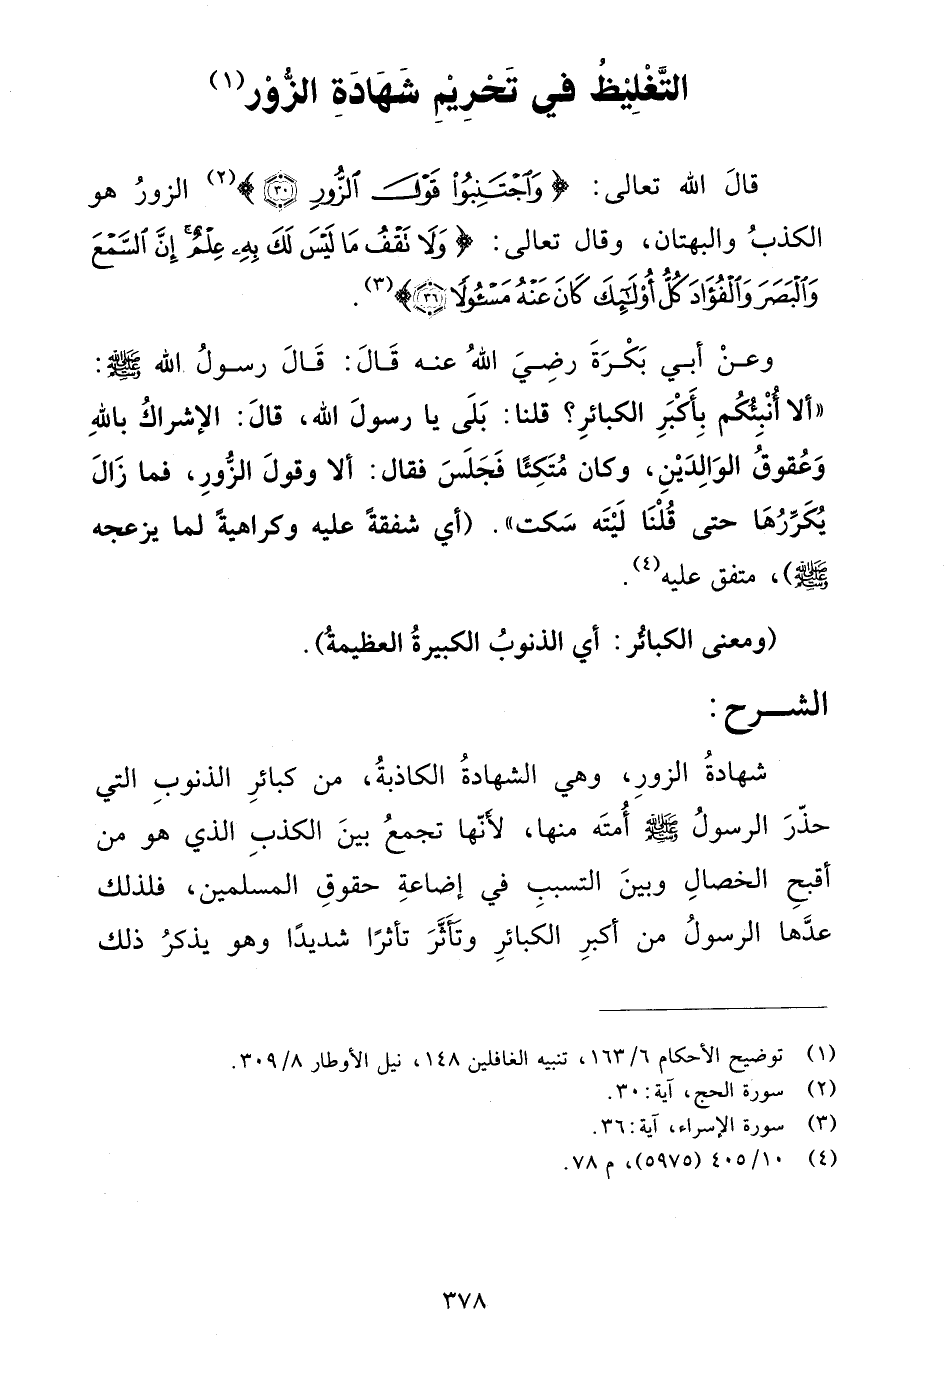 التَّغْلِيْظُ في تَحْرِيْمِ شَهَادَةِ الزُّوْر(١)
قالَ الله تعالى: ﴿وَٱجْتَنِبُوا۟ قَوْلَ ٱلزُّورِ ٣٠﴾(٢) الزورُ هو
الكذبُ والبهتان، وقال تعالى: ﴿وَلَا تَقْفُ مَا لَيْسَ لَكَ بِهِۦ عِلْمٌ ۚ إِنَّ ٱلسَّمْعَ
وَٱلْبَصَرَ وَٱلْفُؤَادَ كُلُّ أُو۟لَٰٓئِكَ كَانَ عَنْهُ مَسْـُٔولًا ٣٦﴾(٣).
وعـنْ أبـي بَكْـرَةَ رضِـيَ اللهُ عنـه قَـالَ: قَـالَ رسـولُ الله ﷺ:
«ألا أُنْبِئُكُم بِأَكْبَرِ الكبائرِ؟ قلنا: بَلَى يا رسولَ الله، قالَ: الإشراكُ باللهِ
وَعُقوقُ الوَالِدَيْنِ، وكان مُتَكِئًا فَجَلَسَ فقال: ألا وقولَ الزُّورِ، فما زَالَ
يُكَرِّرُهَا حتى قُلْنَا لَيْتَه سَكت». (أي شفقةً عليه وكراهيةً لما يزعجه
ﷺ)، متفق عليه(٤).
(ومعنى الكبائر: أي الذنوبُ الكبيرةُ العظيمةُ).
الشـــرح:
شهادةُ الزورِ، وهي الشهادةُ الكاذبةُ، من كبائرِ الذنوبِ التي
حذّرَ الرسولُ ﷺ أُمتَه منها، لأنّها تجمعُ بينَ الكذبِ الذي هو من
أقبحِ الخصالِ وبينَ التسببِ في إضاعةِ حقوقِ المسلمين، فلذلك
عدَّها الرسولُ من أكبرِ الكبائرِ وتَأَثَّرَ تأثرًا شديدًا وهو يذكرُ ذلك
(١) توضيح الأحكام ٦/١٦٣، تنبيه الغافلين ١٤٨، نيل الأوطار ٨/٣٠٩.
(٢) سورة الحج، آية: ٣٠.
(٣) سورة الإسراء، آية: ٣٦.
(٤) ١٠/٤٠٥ (٥٩٧٥)، م ٧٨.
٣٧٨